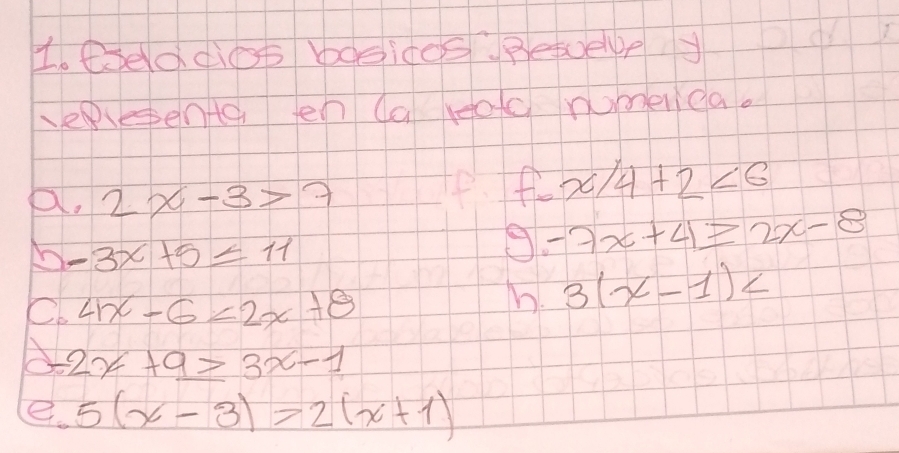 1. Eselacios basicos. Resuelve y
representa en la recta numerica.
a. 2x-3>7
b. -3x+5≤11
c. 4x-6<2x+8
d. -2x+9≥3x-1
e. 5(x-3)>2(x+1)
f. x/4+2<6
g. -7x+4≥2x-8
h. 3(x-1)<